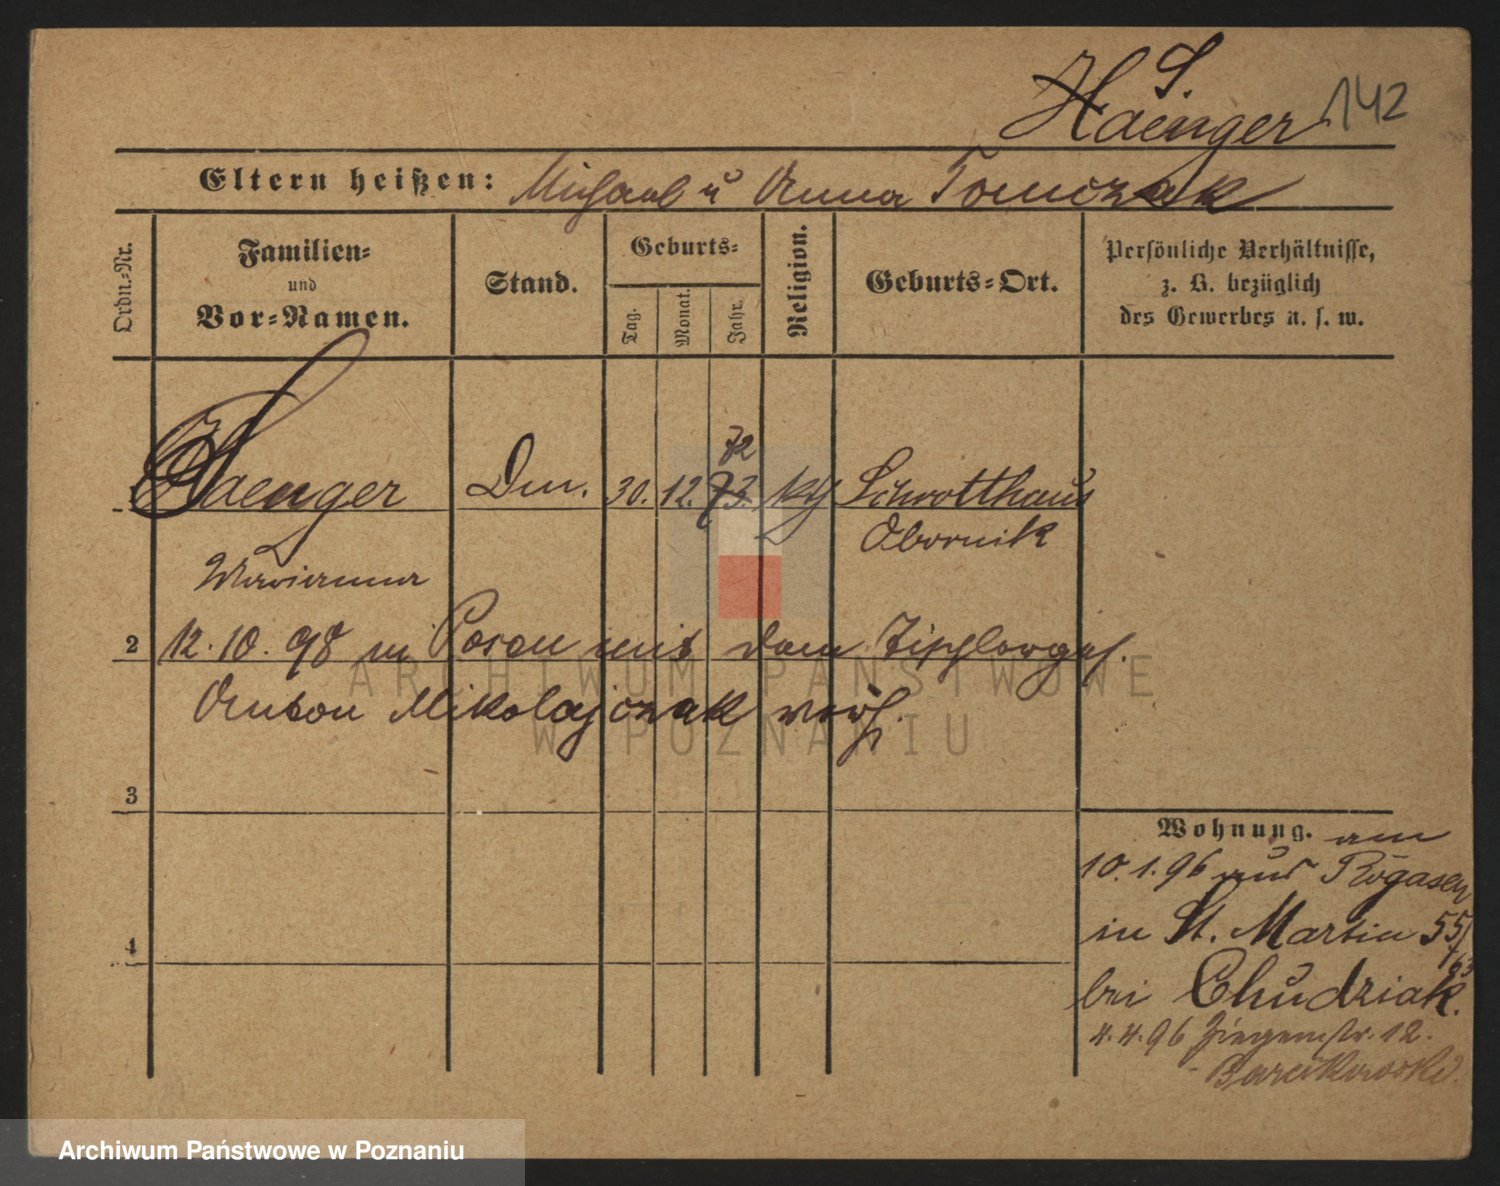 S.
Haenger 142
Eltern heißen: Michael u Anna Tomczak
Ordn.-Nr.
Familien-
und
Vor-Namen.
Stand.
Geburts-
Tag.
Monat.
Jahr.
Religion.
Geburts-Ort.
Persönliche Verhältnisse,
z. B. bezüglich
des Gewerbes u. s. w.
72
Haenger Dm. 30. 12. 73. kth Schrotthaus
Obornik
Marianna
2 12. 10. 98 in Posen mit dem Tischlerges.
Anton Mikolajczak verh.
3
4
Wohnung. am
10.1.96 aus Rogasen
in St. Martin 55/
63
bei Chudziak.
4.4.96 Ziegenstr. 12.
Barcikowski.
ARCHIWUM PAŃSTWOWE
W POZNANIU
Archiwum Państwowe w Poznaniu